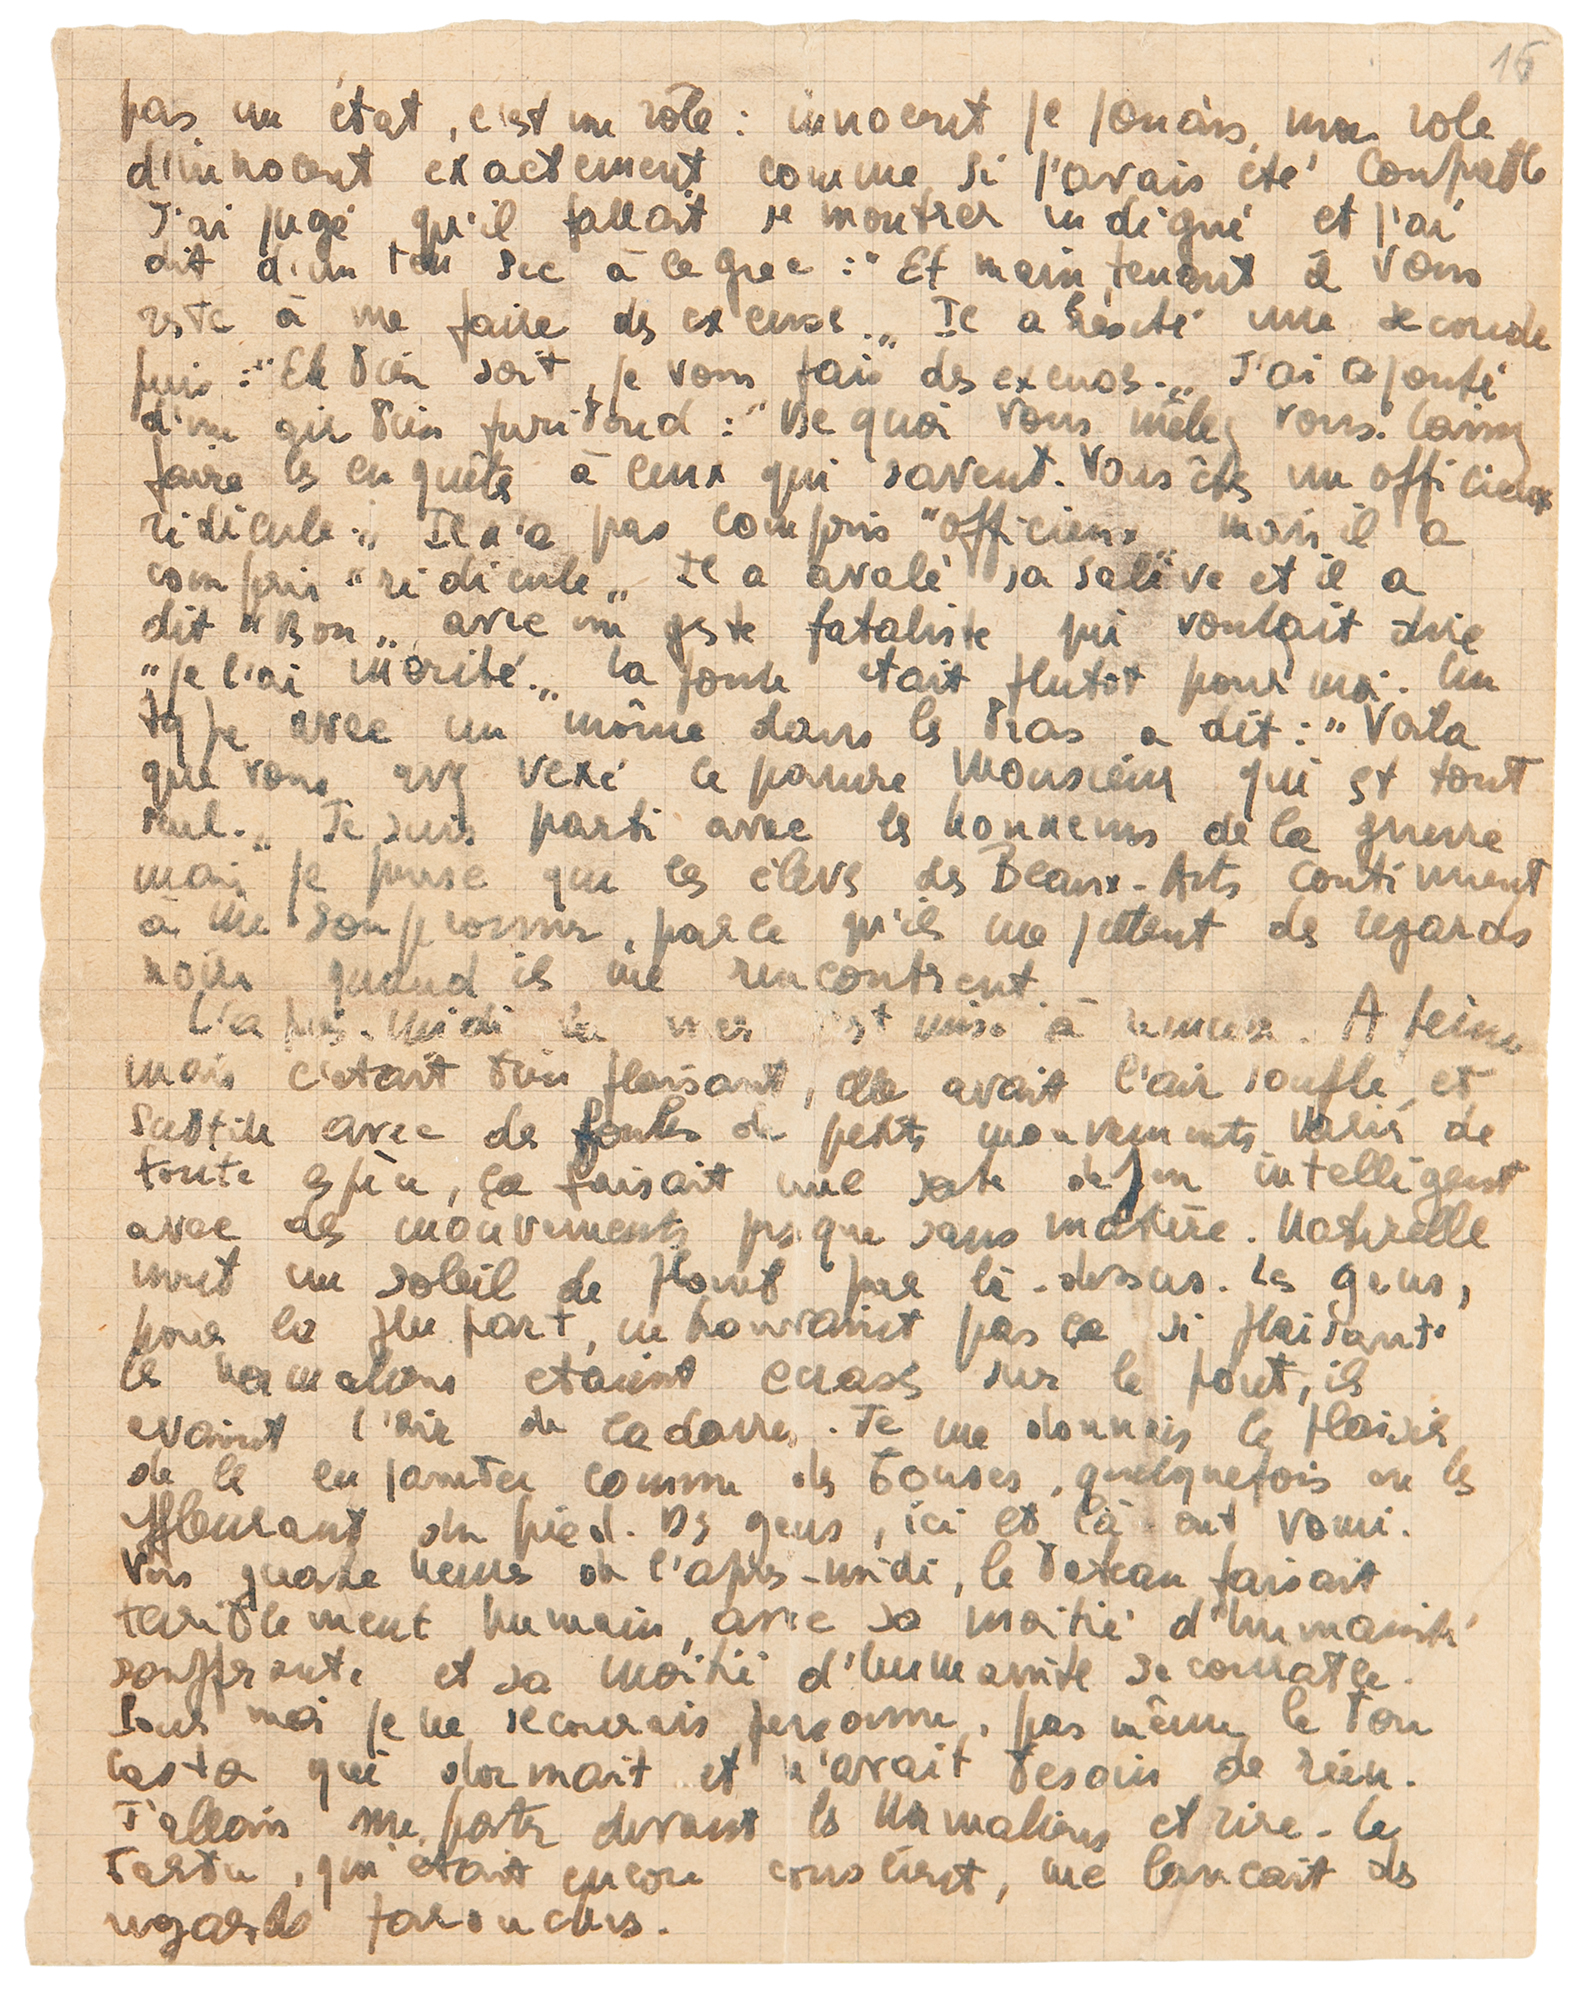 16
pas un état, c'est un rôle : innocent je jouais mon role
d'innocent exactement comme si j'avais été coupable
J'ai jugé qu'il fallait se montrer indigné et j'ai
dit d'un ton sec à le grec : " Et maintenant il vous
reste à me faire des excuses. „ Il a hésité une seconde
puis : " Eh bien soit, je vous fais des excuses. „ J'ai ajouté
d'un air bien furibond : " De quoi vous mêlez vous. Laissez
faire les enquêtes à ceux qui savent. Vous êtes un officieux
ridicule. „ Il n'a pas compris "officieux„ mais il a
compris "ridicule„ Il a avalé sa salive et il a
dit "Bon„ avec un geste fataliste qui voulait dire
"je l'ai mérité. „ La foule etait plutôt pour moi. Un
type avec un môme dans les bras a dit : " Voila
que vous avez vexé ce pauvre Monsieur qui est tout
seul. „ Je suis parti avec les honneurs de la guerre
mais je pense que les élèves des Beaux-Arts continuent
à me soupçonner, parce qu'ils me jettent des regards
noirs quand ils me rencontrent.
L'après-midi la mer s'est mise à remuer. A peine
mais c'etait bien plaisant, elle avait l'air souple et
subtile avec de foules de petits mouvements variés de
toute espèce, ça faisait une sorte de jeu intelligent
avec des mouvements presque sans matière. Naturelle
ment un soleil de plomb par là-dessus. Les gens,
pour la plupart, ne trouvaient pas ça si plaisant.
les normaliens etaient écrasés sur le pont, ils
avaient l'air de cadavres. Je me donnais le plaisir
de les enjamber comme des bouses, quelquefois en les
effleurant du pied. Des gens, ici et là ont vomi.
Vers quatre heures de l'après-midi, le bateau faisait
terriblement humain, avec sa moitié d'humanité
souffrante et sa moitié d'humanité secourable.
Pour moi je ne secourais personne, pas même le bon
Casta qui dormait et n'avait besoin de rien.
J'allais me poster devant les Normaliens et rire. Le
Tardu, qui etait encore conscient, me lançait des
regards farouches.